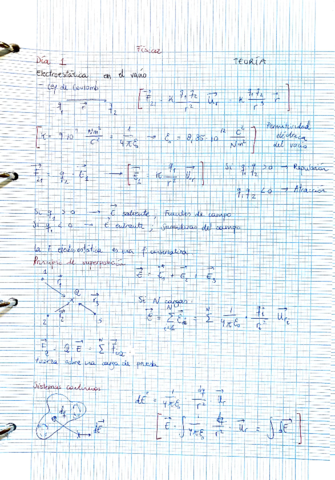 Física
Día 1 TEORÍA
Electrostática en el vacío
- Ley de Coulomb
q1 r q2
[F21 = K q1 q2 / r² ur = K q1 q2 / r³ r]
[K = 9·10⁹ Nm²/C² = 1/4πξ0 → ξ0 = 8,85·10⁻¹² C²/Nm²] Permitividad
eléctrica
del vacío
F21 = q2 · E1 → [E1 = K q1/r² ur] Si q1 q2 > 0 → Repulsión
q1 q2 < 0 → Atracción
Si q1 > 0 → E saliente, Fuentes de campo
Si q1 < 0 → E entrante, Sumideros del campo
La F electrostática es una f. conservativa
Principio de superposición
E = E1 + E2 + E3
Si N cargas:
E = Σ Ei = Σ 1/4πξ0 qi/ri² ur
F = Q E = Σ F
Fuerza sobre una carga de prueba
Sistemas continuos
dE = 1/4πξ0 dq/r² ur
dq dE
[E = ∫ 1/4πξ0 dq/r² ur = ∫ dE]